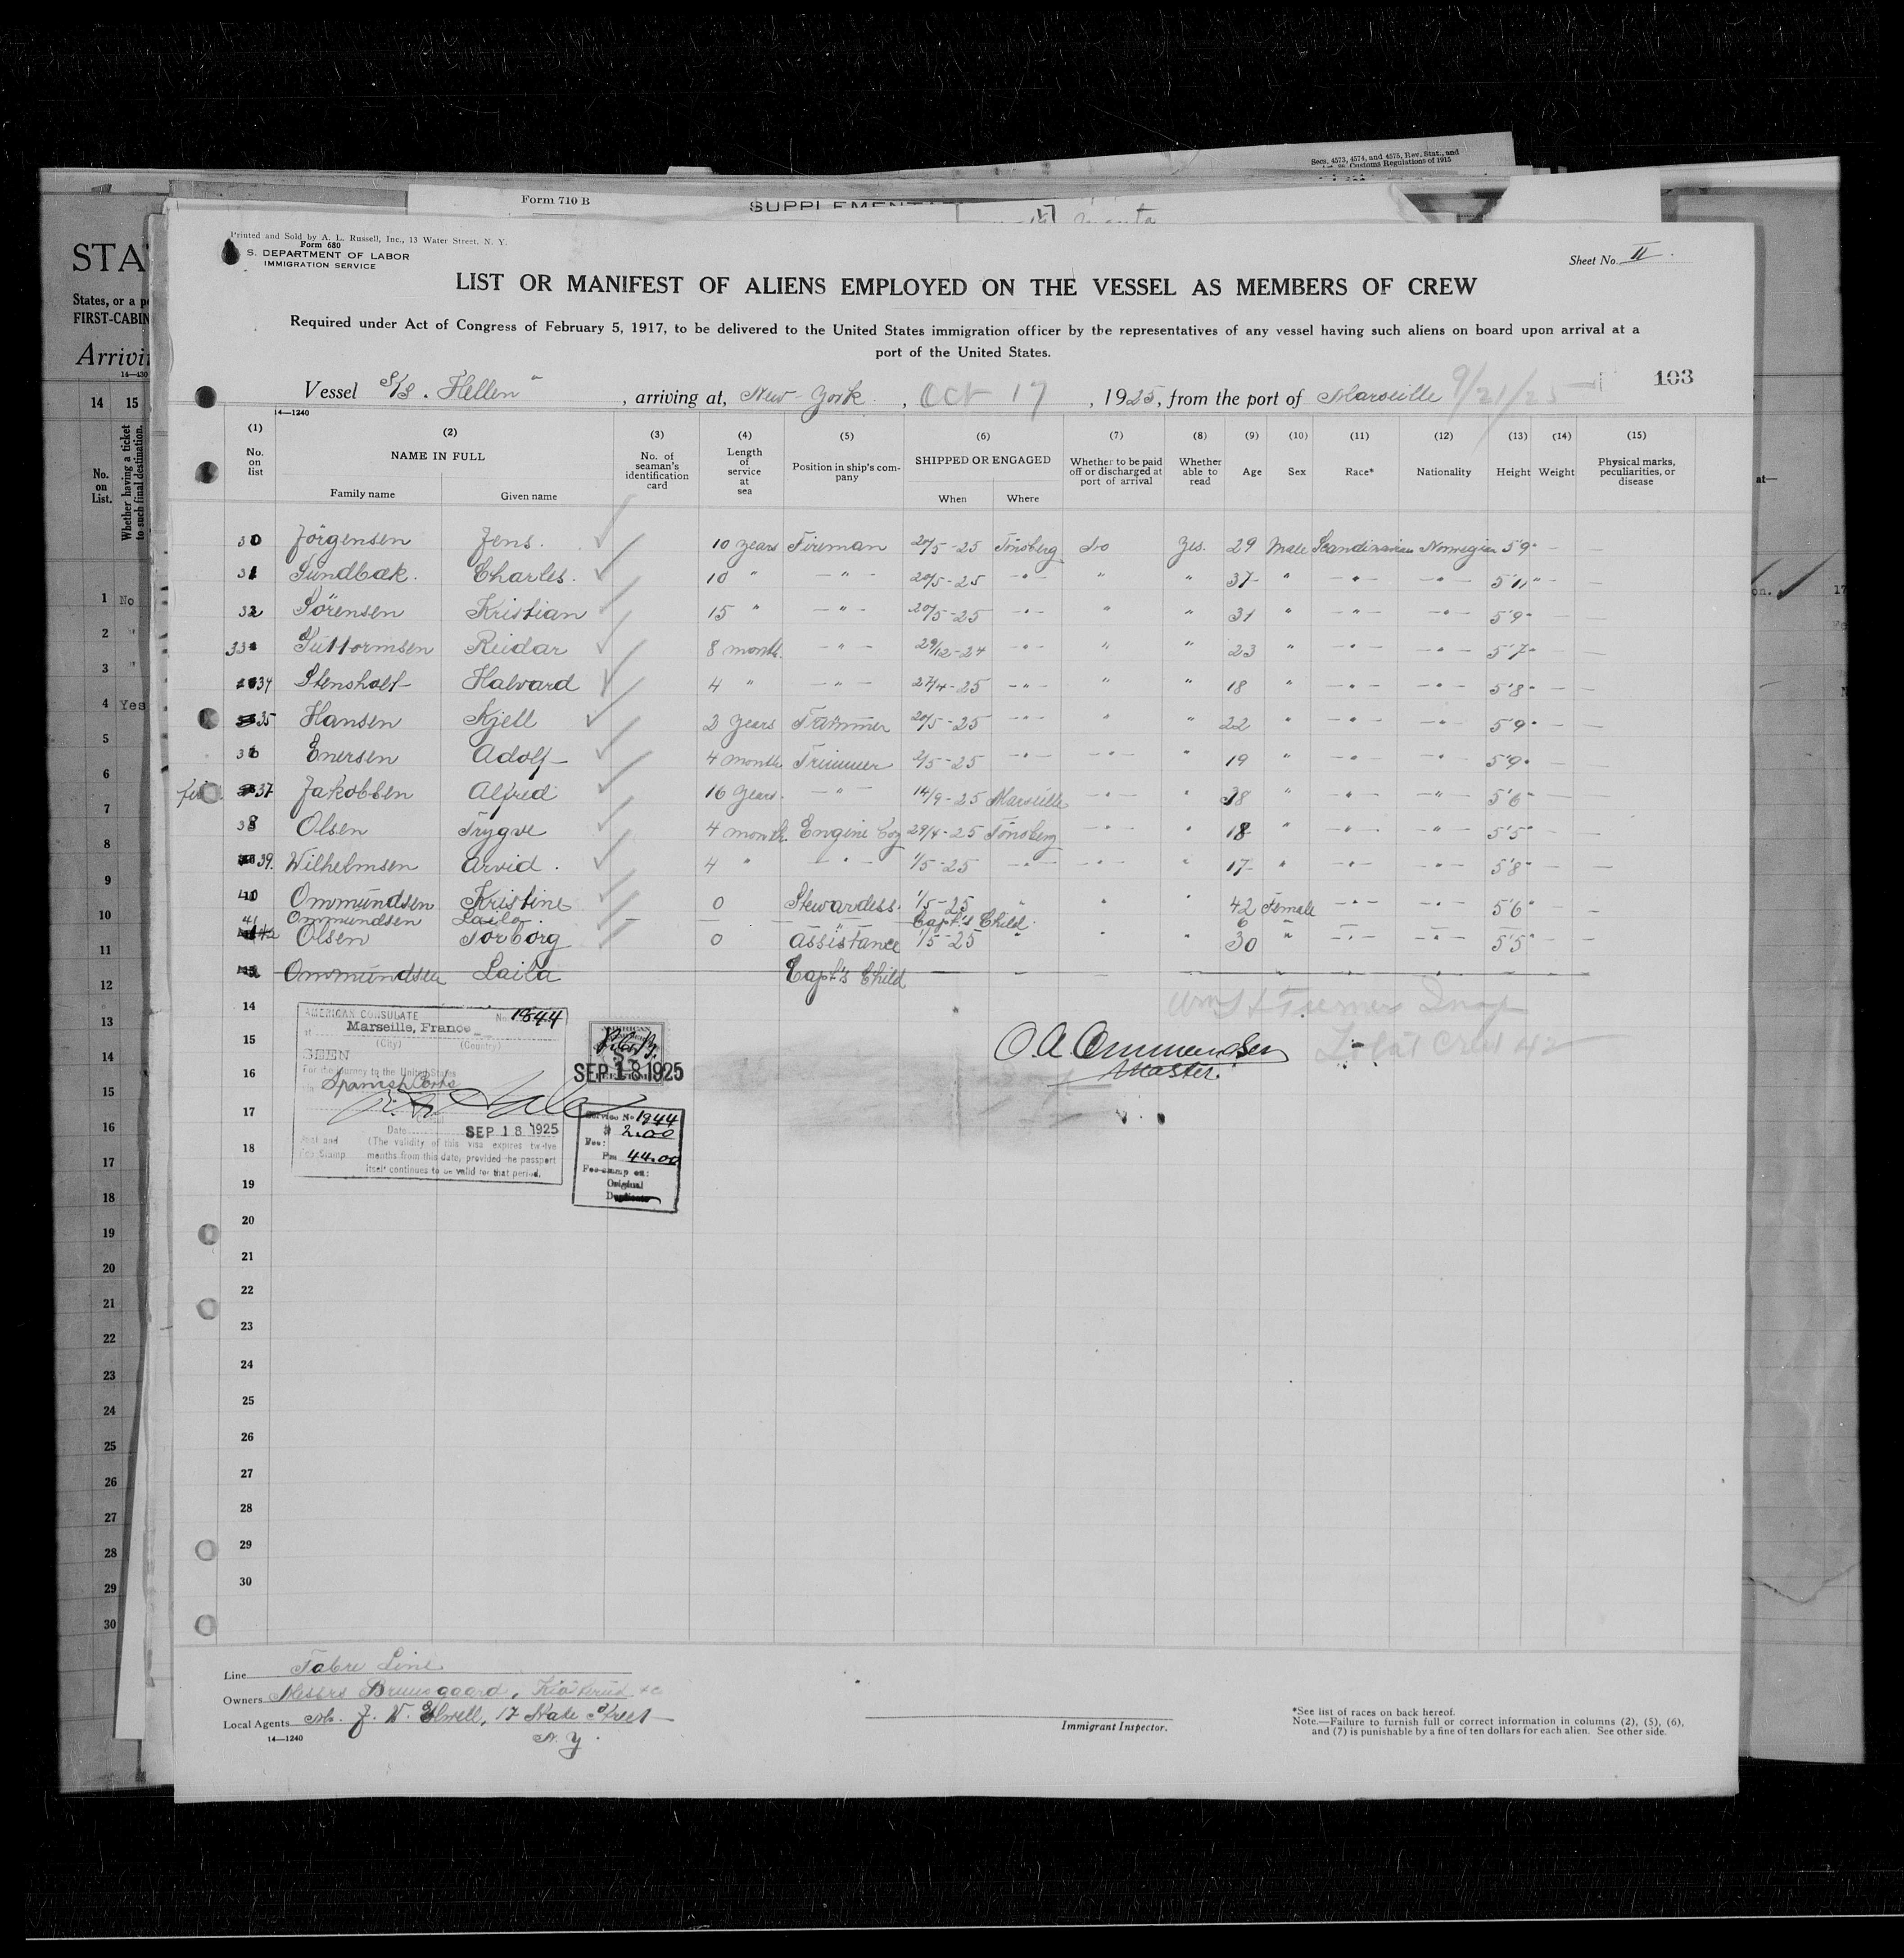 Secs. 4573, 4574, and 4575, Rev. Stat., and
Customs Regulations of 1915
Form 710 B
Printed and Sold by A. L. Russell, Inc., 13 Water Street, N. Y.
Form 680
S. DEPARTMENT OF LABOR
IMMIGRATION SERVICE
Sheet No. II
LIST OR MANIFEST OF ALIENS EMPLOYED ON THE VESSEL AS MEMBERS OF CREW
Required under Act of Congress of February 5, 1917, to be delivered to the United States immigration officer by the representatives of any vessel having such aliens on board upon arrival at a
port of the United States.
103
Vessel S/S. Hellen", arriving at, New York, Oct 17, 1925, from the port of Marseille 9/21/25
14—1240
(1) (2) (3) (4) (5) (6) (7) (8) (9) (10) (11) (12) (13) (14) (15)
No. on list NAME IN FULL Family name Given name No. of seaman's identification card Length of service at sea Position in ship's company SHIPPED OR ENGAGED When Where Whether to be paid off or discharged at port of arrival Whether able to read Age Sex Race* Nationality Height Weight Physical marks, peculiarities, or disease
30 Jörgensen Jens. 10 years Fireman 20/5-25 Tönsberg No Yes. 29 Male Scandinavian Norwegian 5'9" — —
31 Sundbak. Charles. 10 " — " — 20/5-25 — " — " " 37 " — " — — " — 5'11" — —
32 Sörensen Kristian 15 " — " — 20/5-25 — " — " " 31 " — " — — " — 5'9" — —
33 Guttormsen Reidar 8 month. — " — 29/12-24 — " — " " 23 " — " — — " — 5'7" — —
34 Stensholt Halvard 4 " — " — 27/4-25 — " — " " 18 " — " — — " — 5'8" — —
35 Hansen Kjell 2 years Trimmer 20/5-25 — " — " " 22 " — " — — " — 5'9" — —
36 Enersen Adolf 4 month Trimmer 2/5-25 — " — — " — " 19 " — " — — " — 5'9" — —
37 Jakobsen Alfred 16 years. — " — 14/9-25 Marseille — " — " 38 " — " — — " — 5'6" — —
38 Olsen Trygve 4 month Engine boy 29/4-25 Tönsberg — " — " 18 " — " — — " — 5'5" — —
39. Wilhelmsen Arvid. 4 " — " — 1/5-25 — " — — " — " 17 " — " — — " — 5'8" — —
40 Ommundsen Kristine 0 Stewardess. 1/5-25 " " " 42 Female — " — — " — 5'6" — —
41 Ommundsen Laila. — — — Capt's Child. 6 "
42 Olsen Torborg 0 Assistance 1/5-25 " " " 30 " — " — — " — 5'5" — —
Ommundsen Laila Capt's Child
AMERICAN CONSULATE No. 1844
at Marseille, France
(City) (Country)
SEEN
For the journey to the United States
via Spanish Ports
Consul
Date SEP 18 1925
Seal and Fee Stamp. (The validity of this visa expires twelve
months from this date, provided the passport
itself continues to be valid for that period.
AMERICAN
SEP 18 1925
Service No 1944
$ 2.00
Fee:
Frs 44.00
Fee stamp on:
Original
Duplicate
O. A. Ommundsen
Master.
Total Crew 42
14
15
16
17
18
19
20
21
22
23
24
25
26
27
28
29
30
Line Fabre Line
Owners Messrs
Local Agents J. W. Elwell, 17 State Street
N. Y.
14—1240
Immigrant Inspector.
*See list of races on back hereof.
Note.—Failure to furnish full or correct information in columns (2), (5), (6),
and (7) is punishable by a fine of ten dollars for each alien. See other side.
STA
States, or a
FIRST-CABIN
Arrivi
14—430
14 15
No. on List. Whether having a ticket to such final destination.
1 No
2 "
3 "
4 Yes
5
6
7
8
9
10
11
12
13
14
15
16
17
18
19
20
21
22
23
24
25
26
27
28
29
30